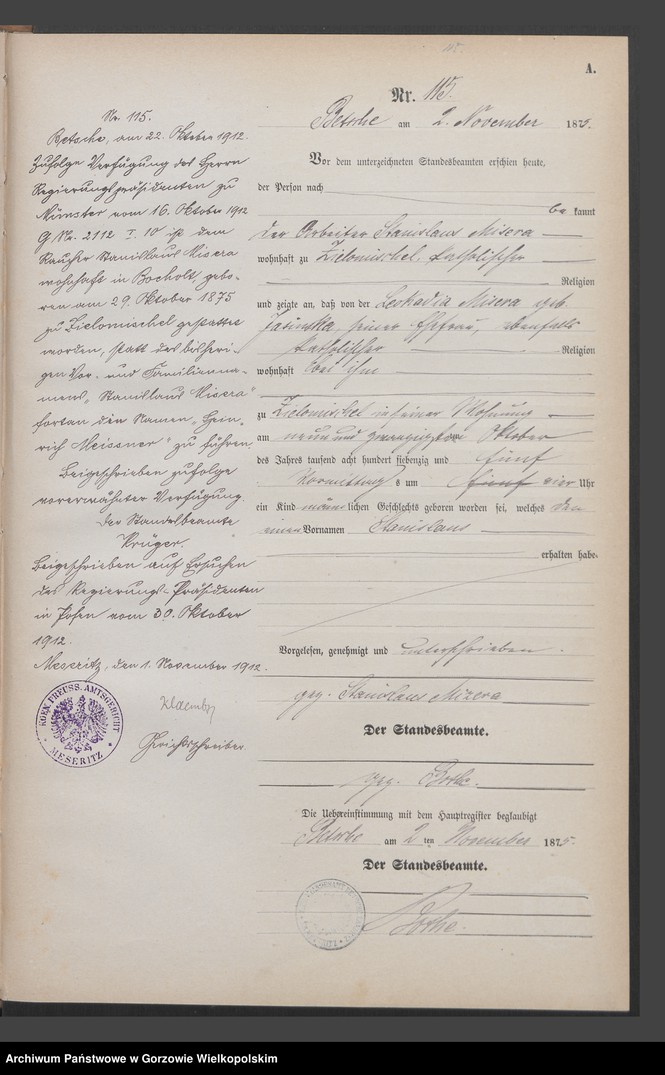 115.
A.
Nr. 115.
Betsche am 2. November 1875.
Vor dem unterzeichneten Standesbeamten erschien heute,
der Person nach
be kannt
der Arbeiter Stanislaus Misera
wohnhaft zu Zielomischel, katholischer
Religion
und zeigte an, daß von der Leokadia Misera geb.
Jasinska, seiner Ehefrau, ebenfalls
katholischer Religion
wohnhaft bei ihm
zu Zielomischel in seiner Wohnung
am neun und zwanzigsten Oktober
des Jahres tausend acht hundert siebenzig und fünf
Vormittag s um fünf vier Uhr
ein Kind männlichen Geschlechts geboren worden sei, welches den
einen Vornamen Stanislaus
erhalten habe.
Vorgelesen, genehmigt und unterschrieben.
gez. Stanislaus Mizera
Der Standesbeamte.
gez. Bothe.
Die Uebereinstimmung mit dem Hauptregister beglaubigt
Betsche am 2 ten November 1875.
Der Standesbeamte.
Bothe.
Nr. 115.
Betsche, am 22. Oktober 1912.
Zufolge Verfügung des Herrn
Regierungspräsidenten zu
Münster vom 16. Oktober 1912
G Nr. 2112 I. 10 ist dem
Rauher Stanislaus Misera
wohnhaft in Bocholt, gebo-
ren am 29. Oktober 1875
zu Zielomischel gestattet
worden, statt des bisheri-
gen Vor- und Familienna-
mens „Stanislaus Misera"
fortan den Namen „Hein-
rich Meissner" zu führen.
Beigeschrieben zufolge
vorerwähnter Verfügung.
Der Standesbeamte
Krüger.
Beigeschrieben auf Ersuchen
des Regierungs-Präsidenten
in Posen vom 30. Oktober
1912.
Meseritz, den 1. November 1912.
Gerichtsschreiber.
KOEN. PREUSS. AMTSGERICHT
MESERITZ
Archiwum Państwowe w Gorzowie Wielkopolskim